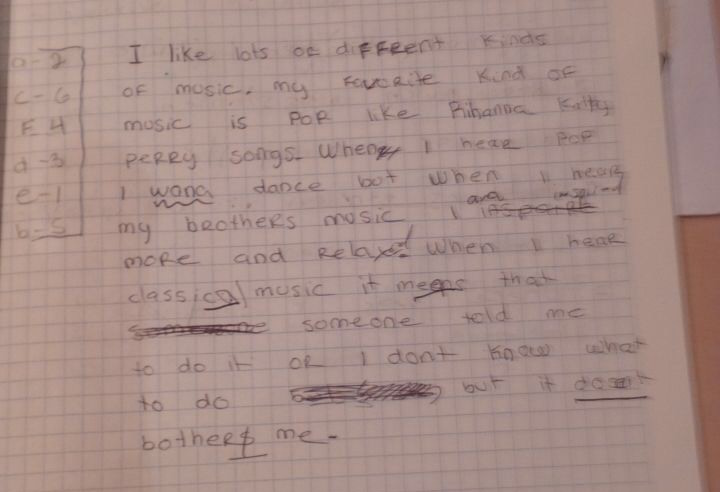 a-2
c-6
F 4
d-3
e-1
b-5
I like lots of different kinds
of music. my favorite kind of
music is pop like Rihanna Katty
perry songs. When I hear pop
I wana dance but when I hear
my brothers music I ana inspired
more and relaxed When I hear
classical music it meens that
someone told me
to do it or I dont know what
to do but it dosent
bothers me.